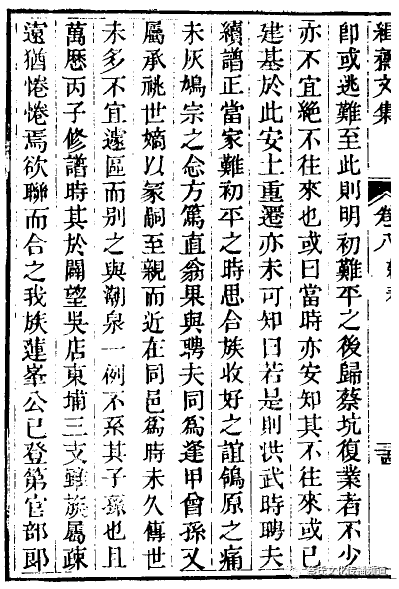 緝齋文集
卷八
卽或逃難至此則明初難平之後歸蔡坑復業者不少
亦不宜絕不往來也或曰當時亦安知其不往來或已
建基於此安土重遷亦未可知曰若是則洪武時聘夫
續譜正當家難初平之時思合族收好之誼鴒原之痛
未灰鳩宗之念方篤直翁果與聘夫同爲逢甲曾孫又
屬承祧世嫡以冢嗣至親而近在同邑爲時未久傳世
未多不宜遽區而別之與潮泉一例不系其子孫也且
萬歷丙子修譜時其於闢望吳店東埔三支雖族屬疎
遠猶惓惓焉欲聯而合之我族蓮峯公已登第官部郎